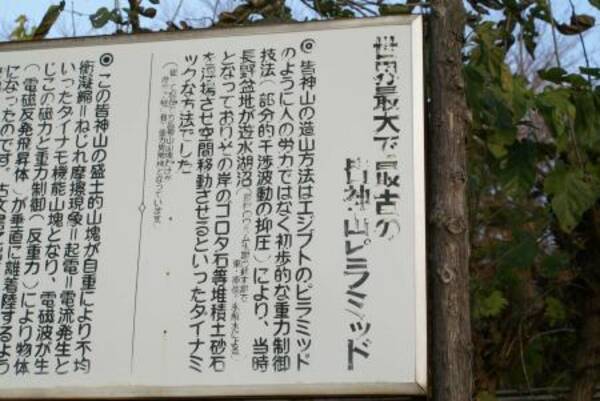 世界最大で最古の
皆神山ピラミッド
◎皆神山の造山方法はエジプトのピラミッド
のように人の労力ではなく初歩的な重力制御
技法(部分的干渉波動の抑圧)により、当時
長野盆地が遊水湖沼
となっておりその岸のゴロタ石等堆積土砂石
を浮揚させ空間移動させるといったダイナミ
ックな方法でした
◎この皆神山の盛土的山塊が自重により不均
衡凝縮＝ねじれ摩擦現象＝起電＝電流発生と
いったダイナモ機能山塊となり、電磁波が生
じこの磁力と重力制御(反重力)により物体
(電磁反発飛昇体)が垂直に離着陸するよう
になったのです。